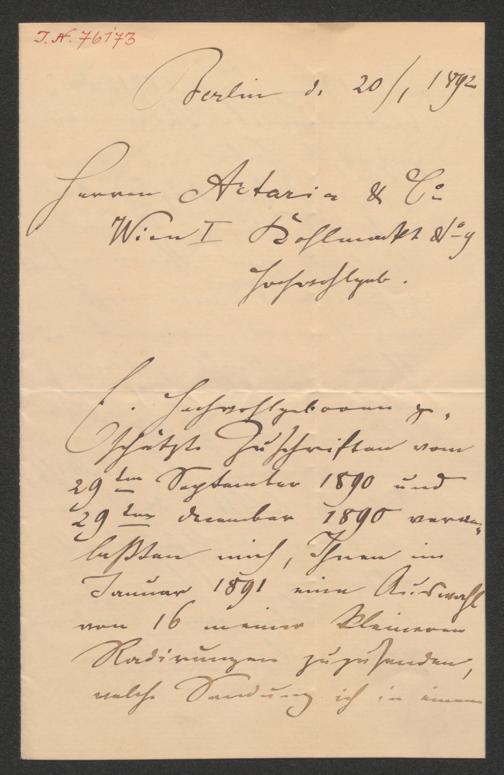 J.N. 76173
Berlin d. 20/1 1892
Herren Artaria & Co
Wien I Kohlmarkt No 9
Hochwohlgeb.
E. Hochwohlgeboren ge-
schätzte Zuschriften vom
29ten September 1890 und
29ten December 1890 veran-
laßten mich, Ihnen im
Januar 1891 eine Auswahl
von 16 meiner kleineren
Radirungen zuzusenden,
welche Sendung ich in einem